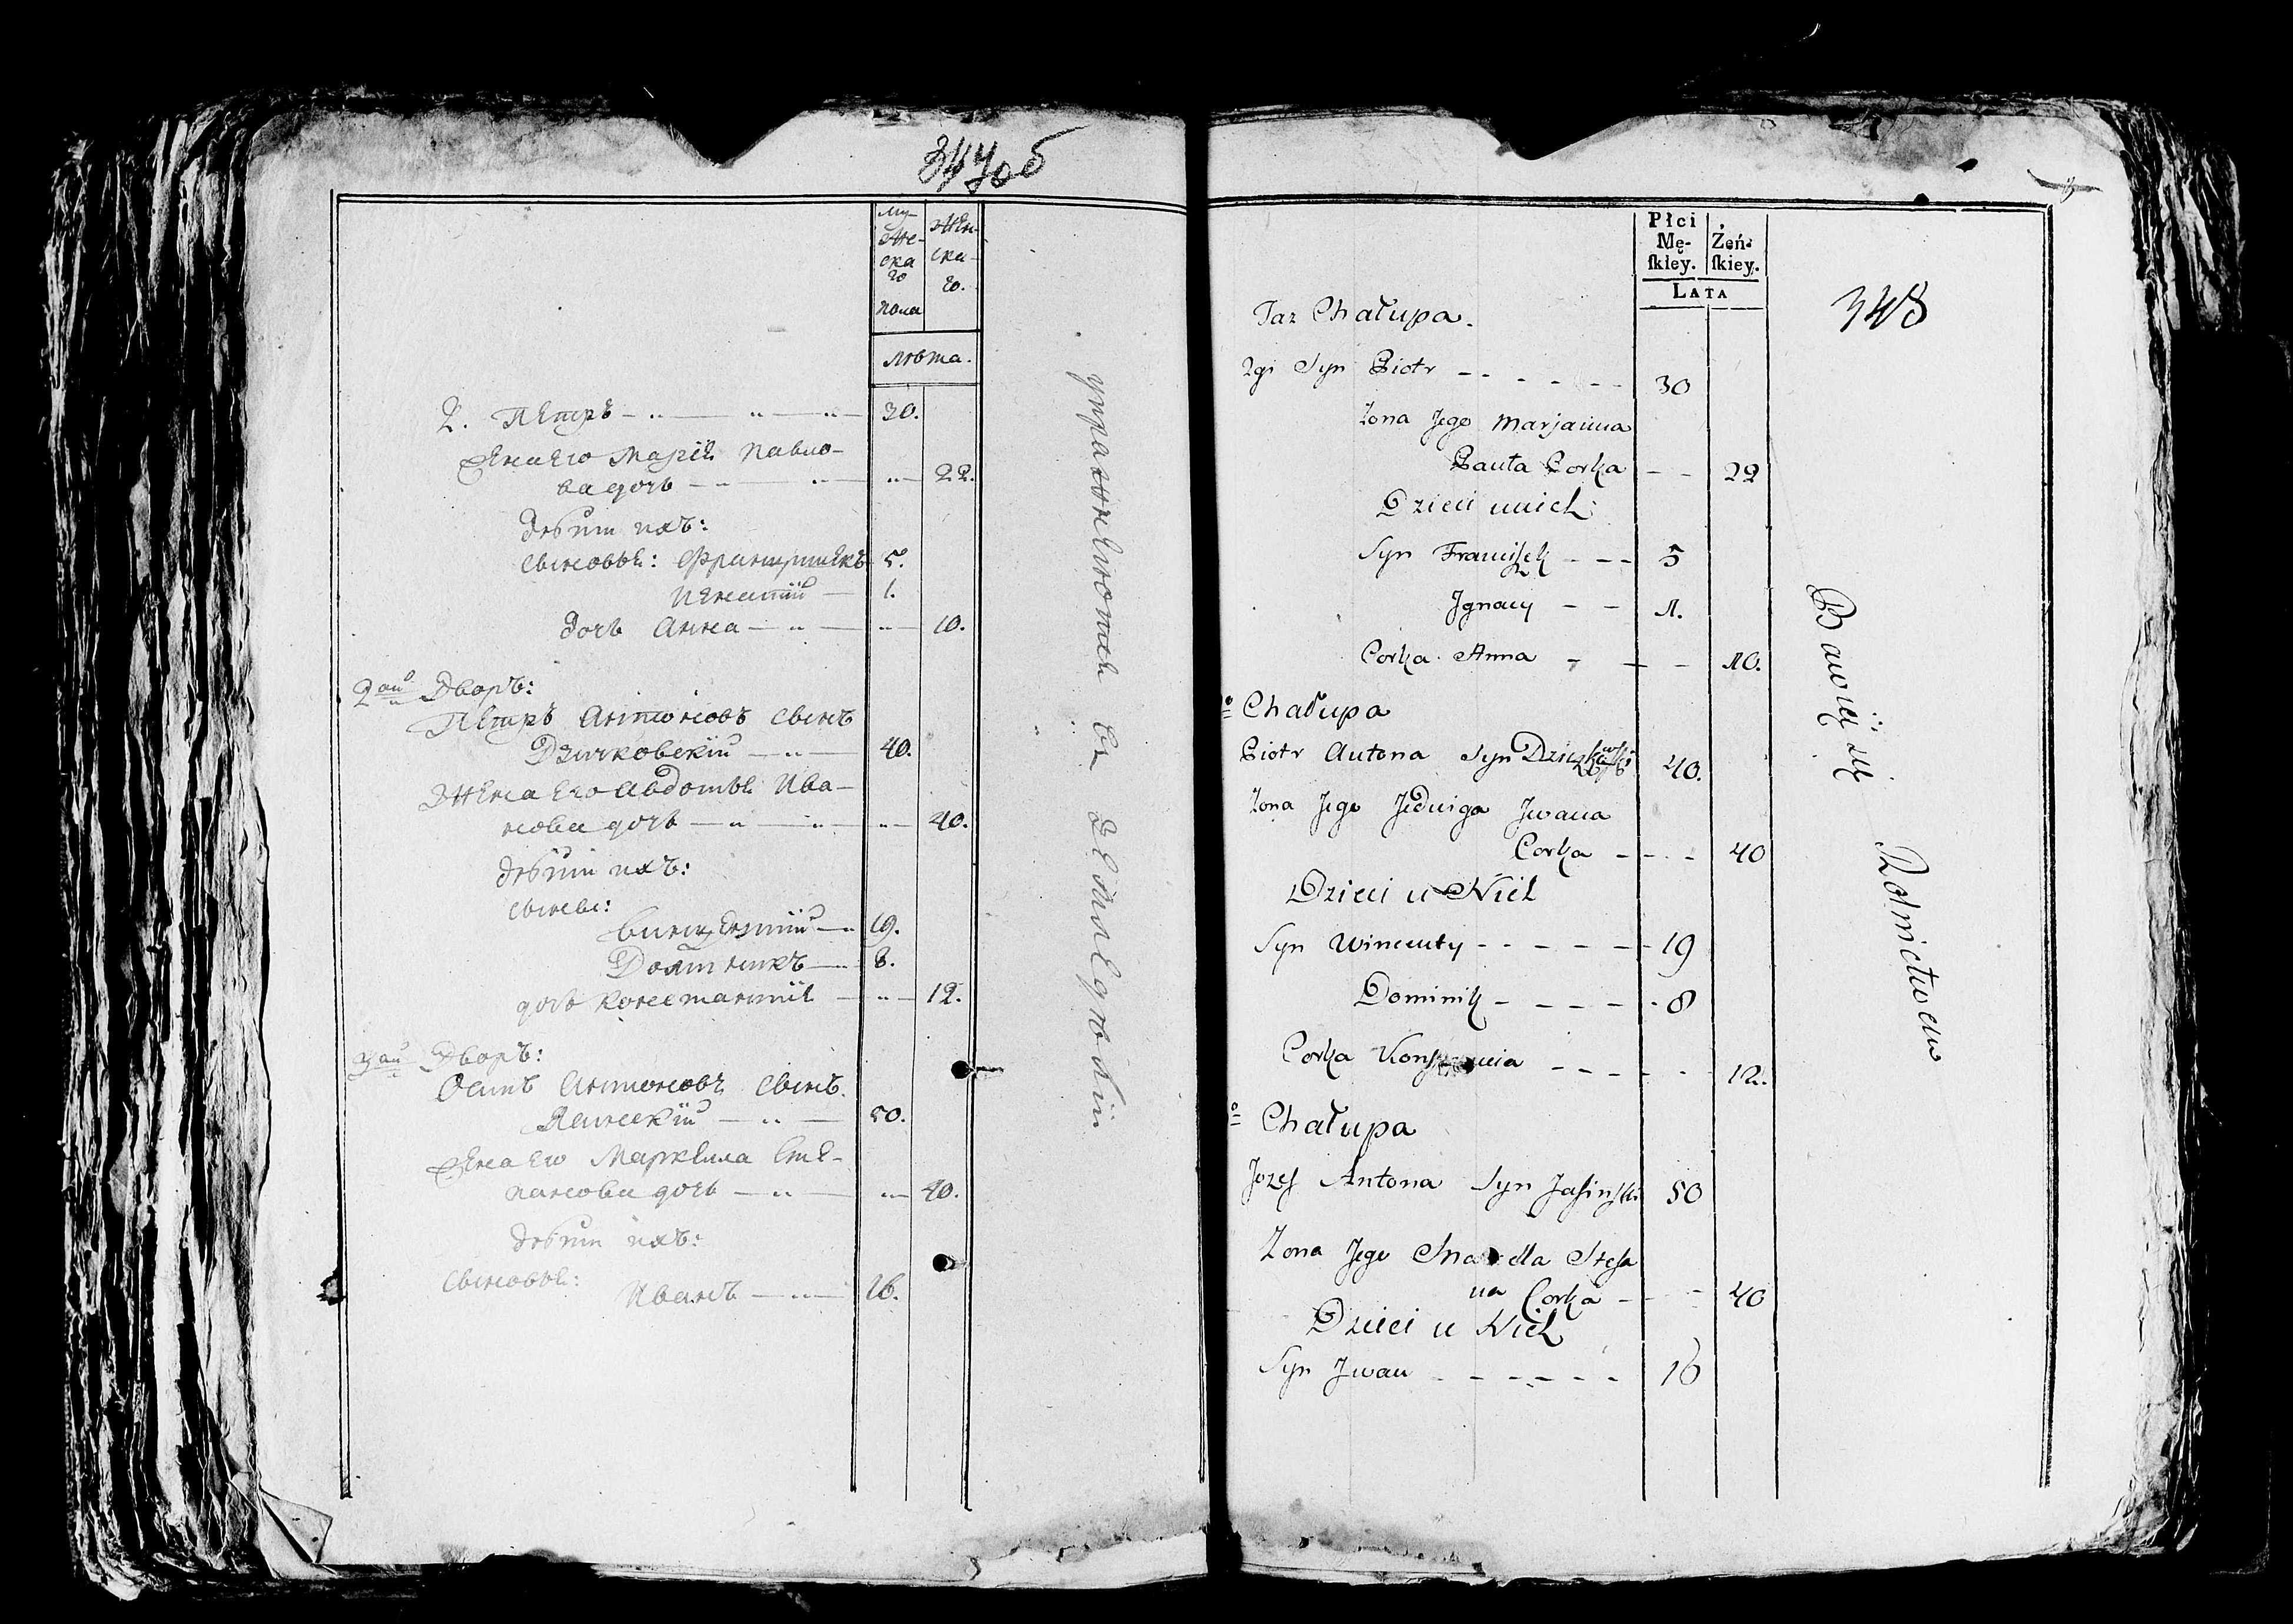 347 об
му-
же-
ска
го
пола
жен-
ска-
го.
лѣта.
2. Петръ 30.
Жена его Марiя Павло-
ва дочь 22.
Дѣти ихъ:
сыновья: Францишекъ 5.
Игнатiй 1.
Дочь Анна 10.
2ой Дворъ:
Петръ Антоновъ сынъ
Дзичковскiй 40.
Жена его Авдотья Ива-
нова дочь 40.
Дѣти ихъ:
сыны:
Винцентiй 19.
Доминикъ 8.
дочь Констанцiя 12.
3ой Дворъ:
Осипъ Антоновъ сынъ
Ясинскiй 50.
Жена его Степа-
нова дочь 40.
Дѣти ихъ:
сыновья:
Иванъ 16.
упражняются въ земледѣлiи
348
Płci
Mę-
skiey.
Żeń-
skiey.
LATA
Taż Chałupa.
2gi Syn Piotr 30
Żona Jego Marjanna
Pawła Corka 22
Dzieci u nich
Syn Franciszek 5
Jgnacy 1.
Corka Anna 10.
Chałupa
Piotr Antona Syn 40.
Żona Jego Jedwiga Jwana
Corka 40
Dzieci u Nich
Syn Wincenty 19
Dominik 8
Corka Konstancia 12.
Chałupa
Jozef Antona Syn Jasinski 50
Zona Jego Stefa
na Corka 40
Dzieci u Nich
Syn Jwan 16
Bawią się Rolnictwem